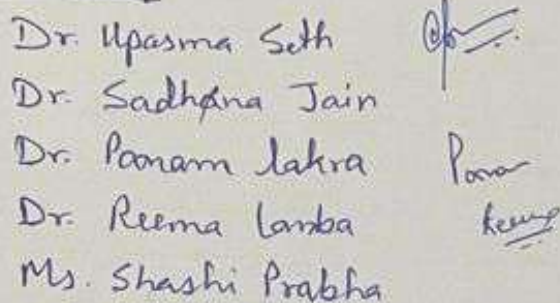 Dr. Upasma Seth
Dr. Sadhana Jain
Dr. Poonam Lakra Poonam
Dr. Reema Lamba Reema
Ms. Shashi Prabha